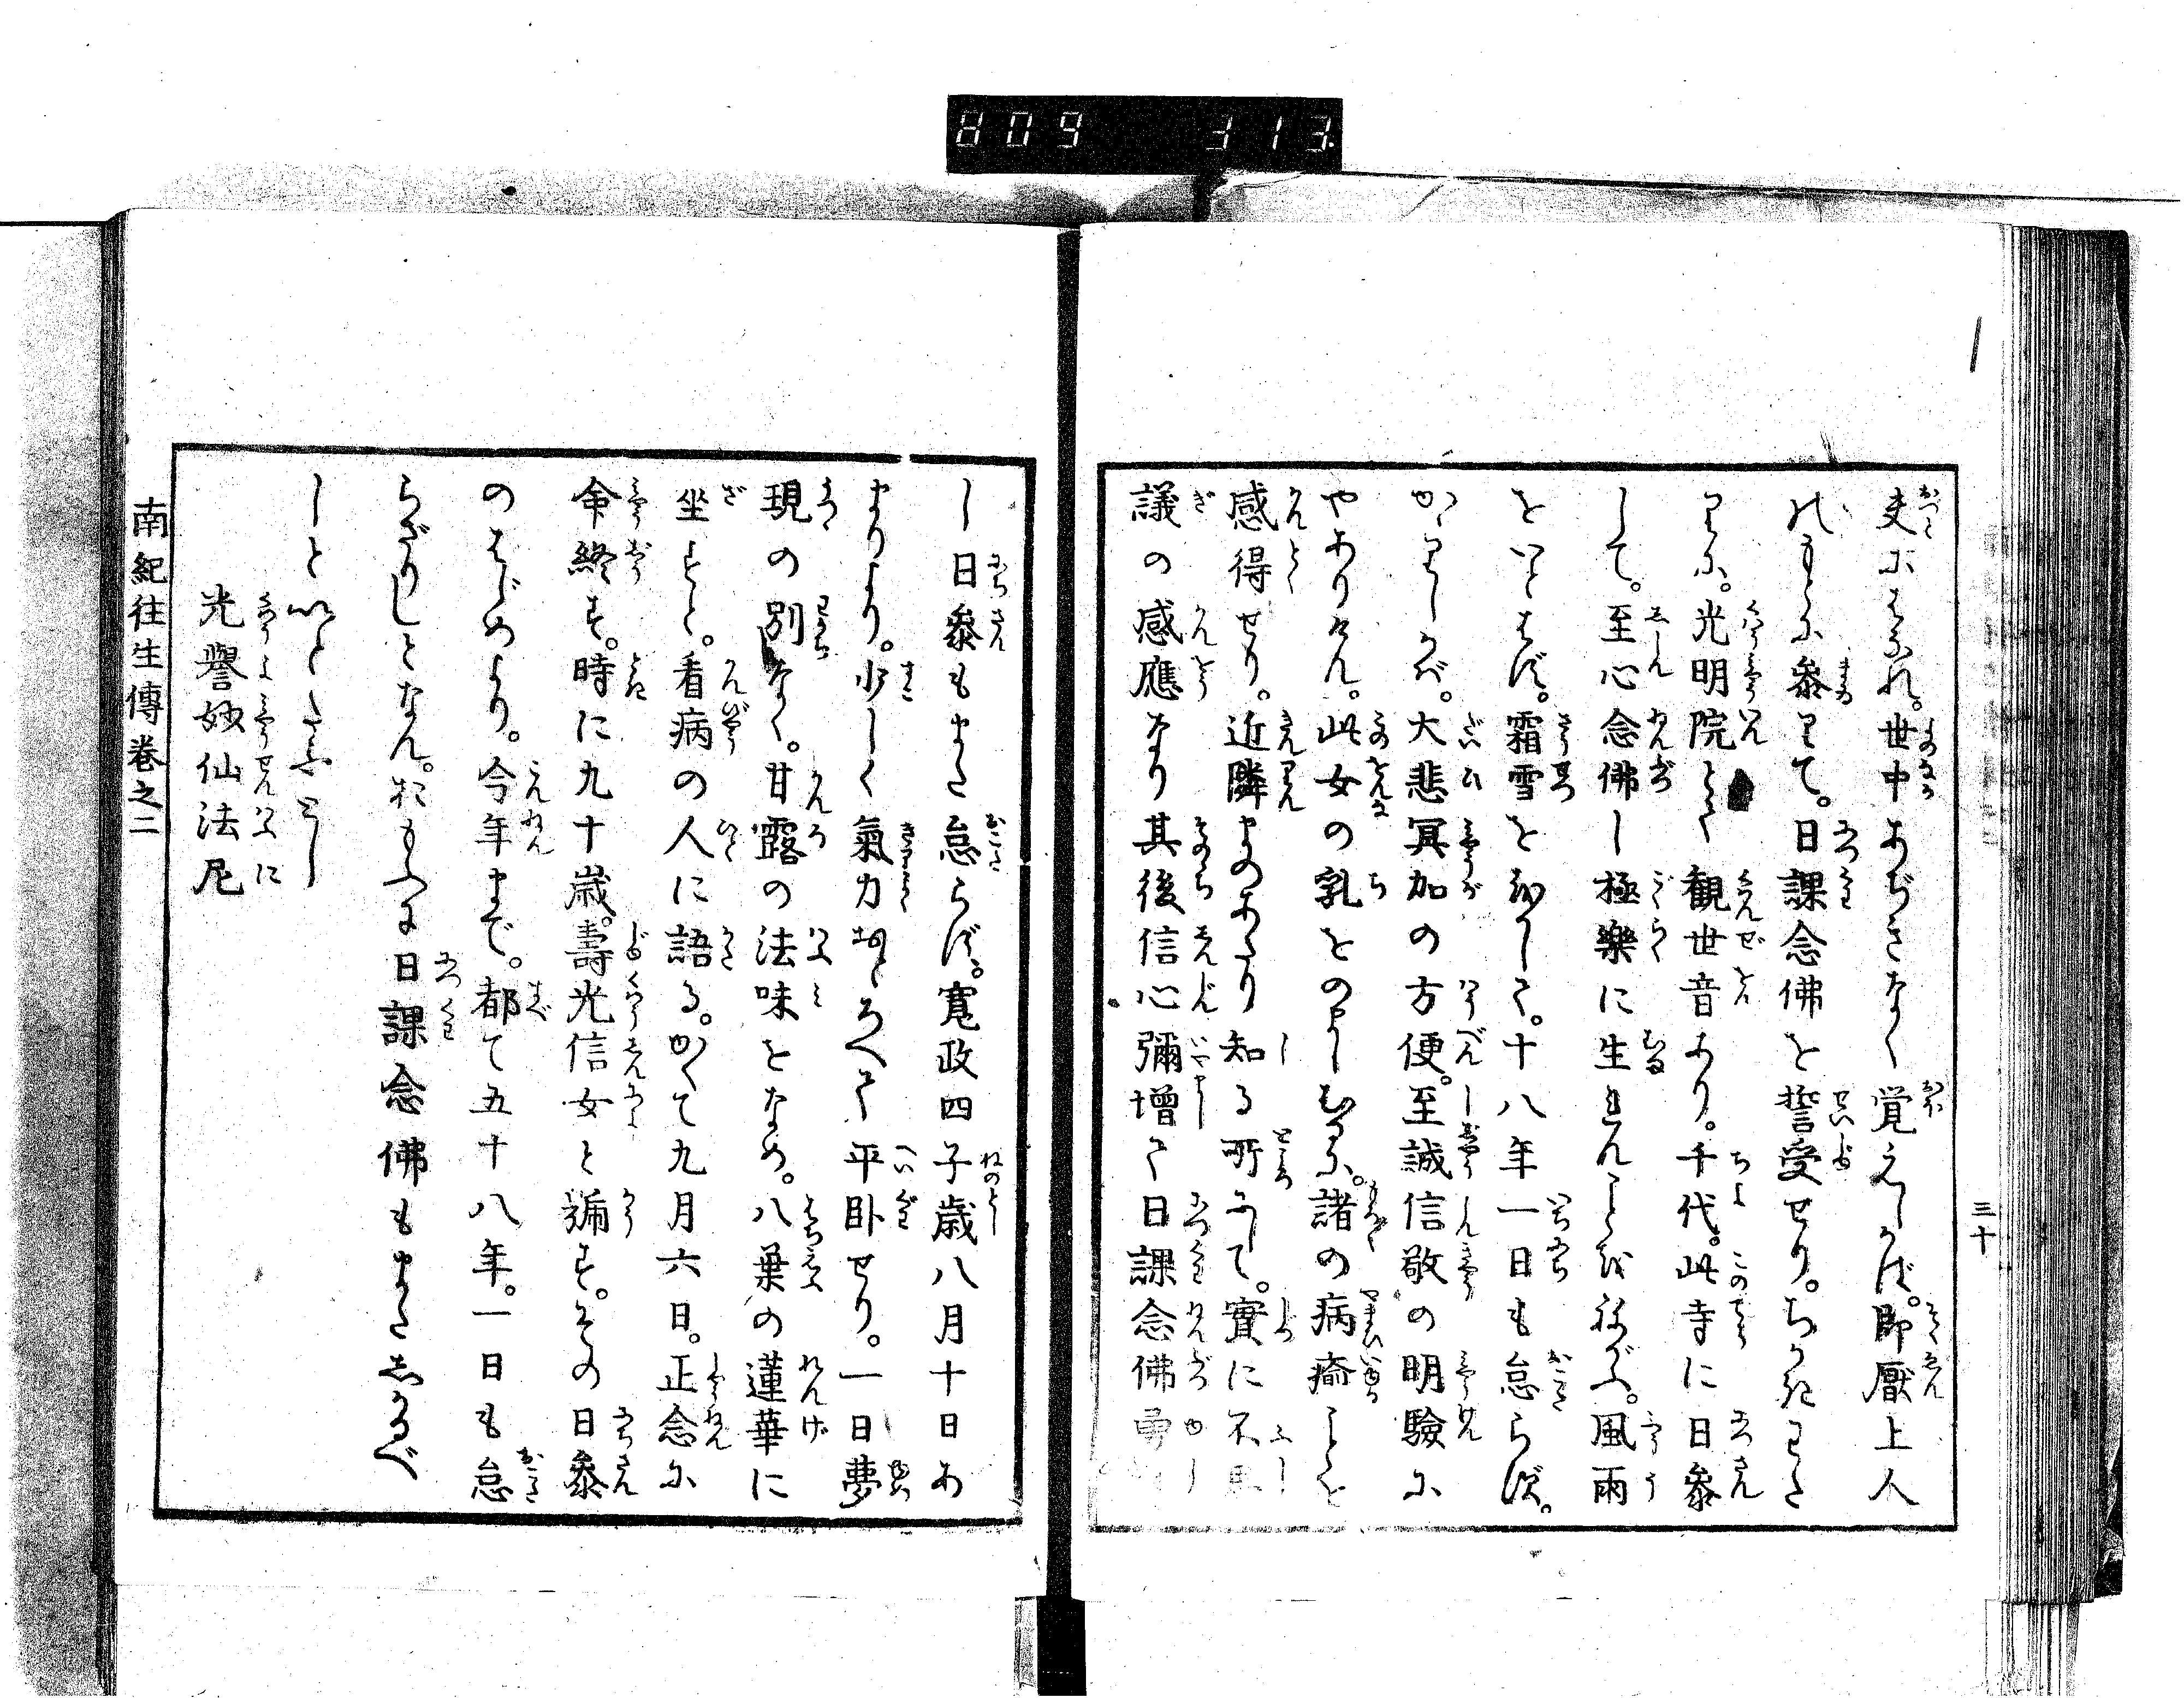 夫にはなれ。世中あぢきなく覚えしかば。即厭上人
のもとに参りて。日課念佛を誓受せり。ちかきわた
りに。光明院とて観世音あり。千代。此寺に日参
して。至心念佛し極樂に生れんことをねがふ。風雨
をいとはず。霜雪をおかして。十八年一日も怠らず。
かゝりしかば。大悲冥加の方便。至誠信敬の明驗に
やありけん。此女の乳をのましむるに。諸の病癒ことを
感得せり。近隣まのあたり知る所にして。實に不思
議の感應なり其後信心彌増て日課念佛
し日参もまた怠らず。寛政四子歳八月十日あ
まりより。少しく氣力おとろへて平臥せり。一日夢
現の別なく。甘露の法味をなめ。八葉の蓮華に
坐すと。看病の人に語る。かくて九月六日。正念に
命終す。時に九十歳。壽光信女と號す。その日参
のはじめより。今年まで。都て五十八年。一日も怠
らざりしとなん。おもふに日課念佛もまたしかるべ
しといとたふとし
光譽妙仙法尼
南紀往生傳卷之二
三十
809 313